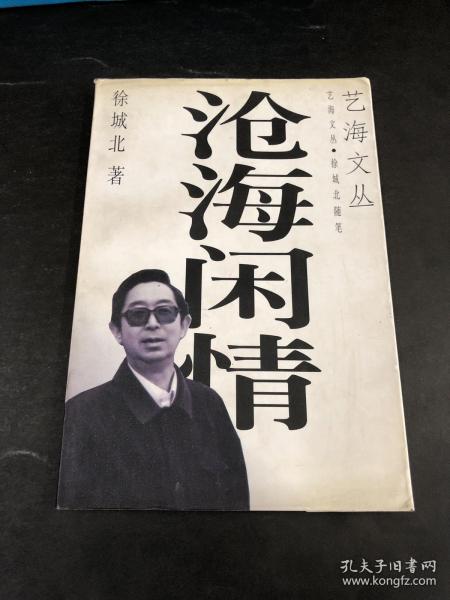 艺海文丛
艺海文丛•徐城北随笔
沧海闲情
徐城北 著
孔夫子旧书网
www.kongfz.com